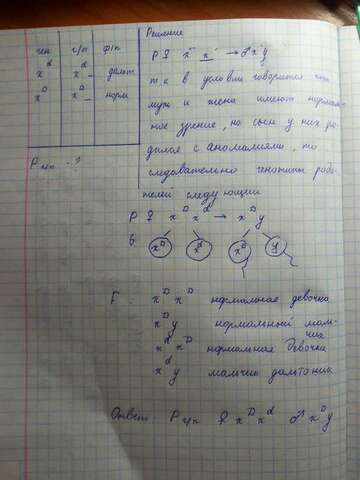 ген г/п ф/п
x^d x^d_ дальт
x^D x^D_ норм
P ген - ?
Решение
P ♀ x x → ♂ x y
т к в условии говорится что
муж и жена имеют нормаль-
ное зрение, но сын у них ро-
дился с аномалиями, то
следовательно генотипы роди-
телей следующии
P ♀ x^D x^d → x^D y
б x^D x^d x^D y
F : x^D x^D нормальная девочка
x^D y нормальный маль-
чик
x^d x^D нормальная девочка
x^d y мальчик дальтоник
Ответ: P ген ♀ x^D x^d ♂ x^D y